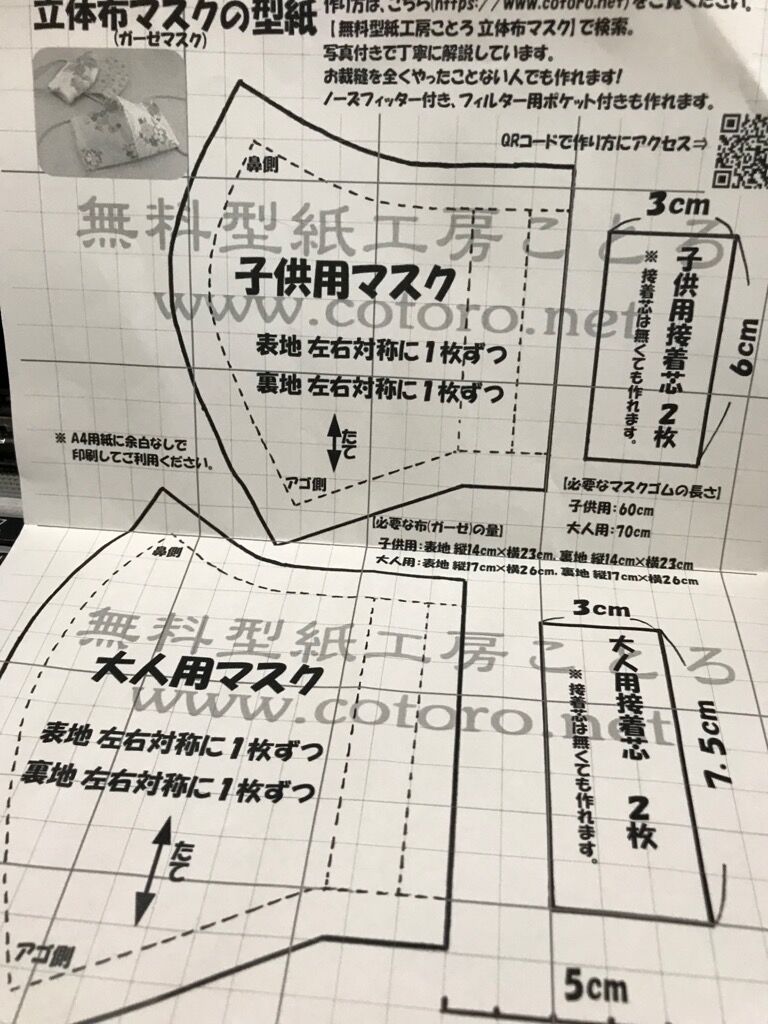 立体布マスクの型紙
(ガーゼマスク)
作り方は、こちら(https://www.cotoro.net)をご覧ください。
【無料型紙工房ことろ 立体布マスク】で検索。
写真付きで丁寧に解説しています。
お裁縫を全くやったことない人でも作れます!
ノーズフィッター付き、フィルター用ポケット付きも作れます。
QRコードで作り方にアクセス⇒
鼻側
無料型紙工房ことろ
www.cotoro.net
子供用マスク
表地 左右対称に1枚ずつ
裏地 左右対称に1枚ずつ
たて
アゴ側
3cm
6cm
子供用接着芯 2枚
※ 接着芯は無くても作れます。
※ A4用紙に余白なしで
印刷してご利用ください。
【必要なマスクゴムの長さ】
子供用:60cm
大人用:70cm
【必要な布(ガーゼ)の量】
子供用:表地 縦14cm×横23cm、裏地 縦14cm×横23cm
大人用:表地 縦17cm×横26cm、裏地 縦17cm×横26cm
鼻側
無料型紙工房ことろ
www.cotoro.net
大人用マスク
表地 左右対称に1枚ずつ
裏地 左右対称に1枚ずつ
たて
アゴ側
3cm
7.5cm
大人用接着芯 2枚
※ 接着芯は無くても作れます。
5cm